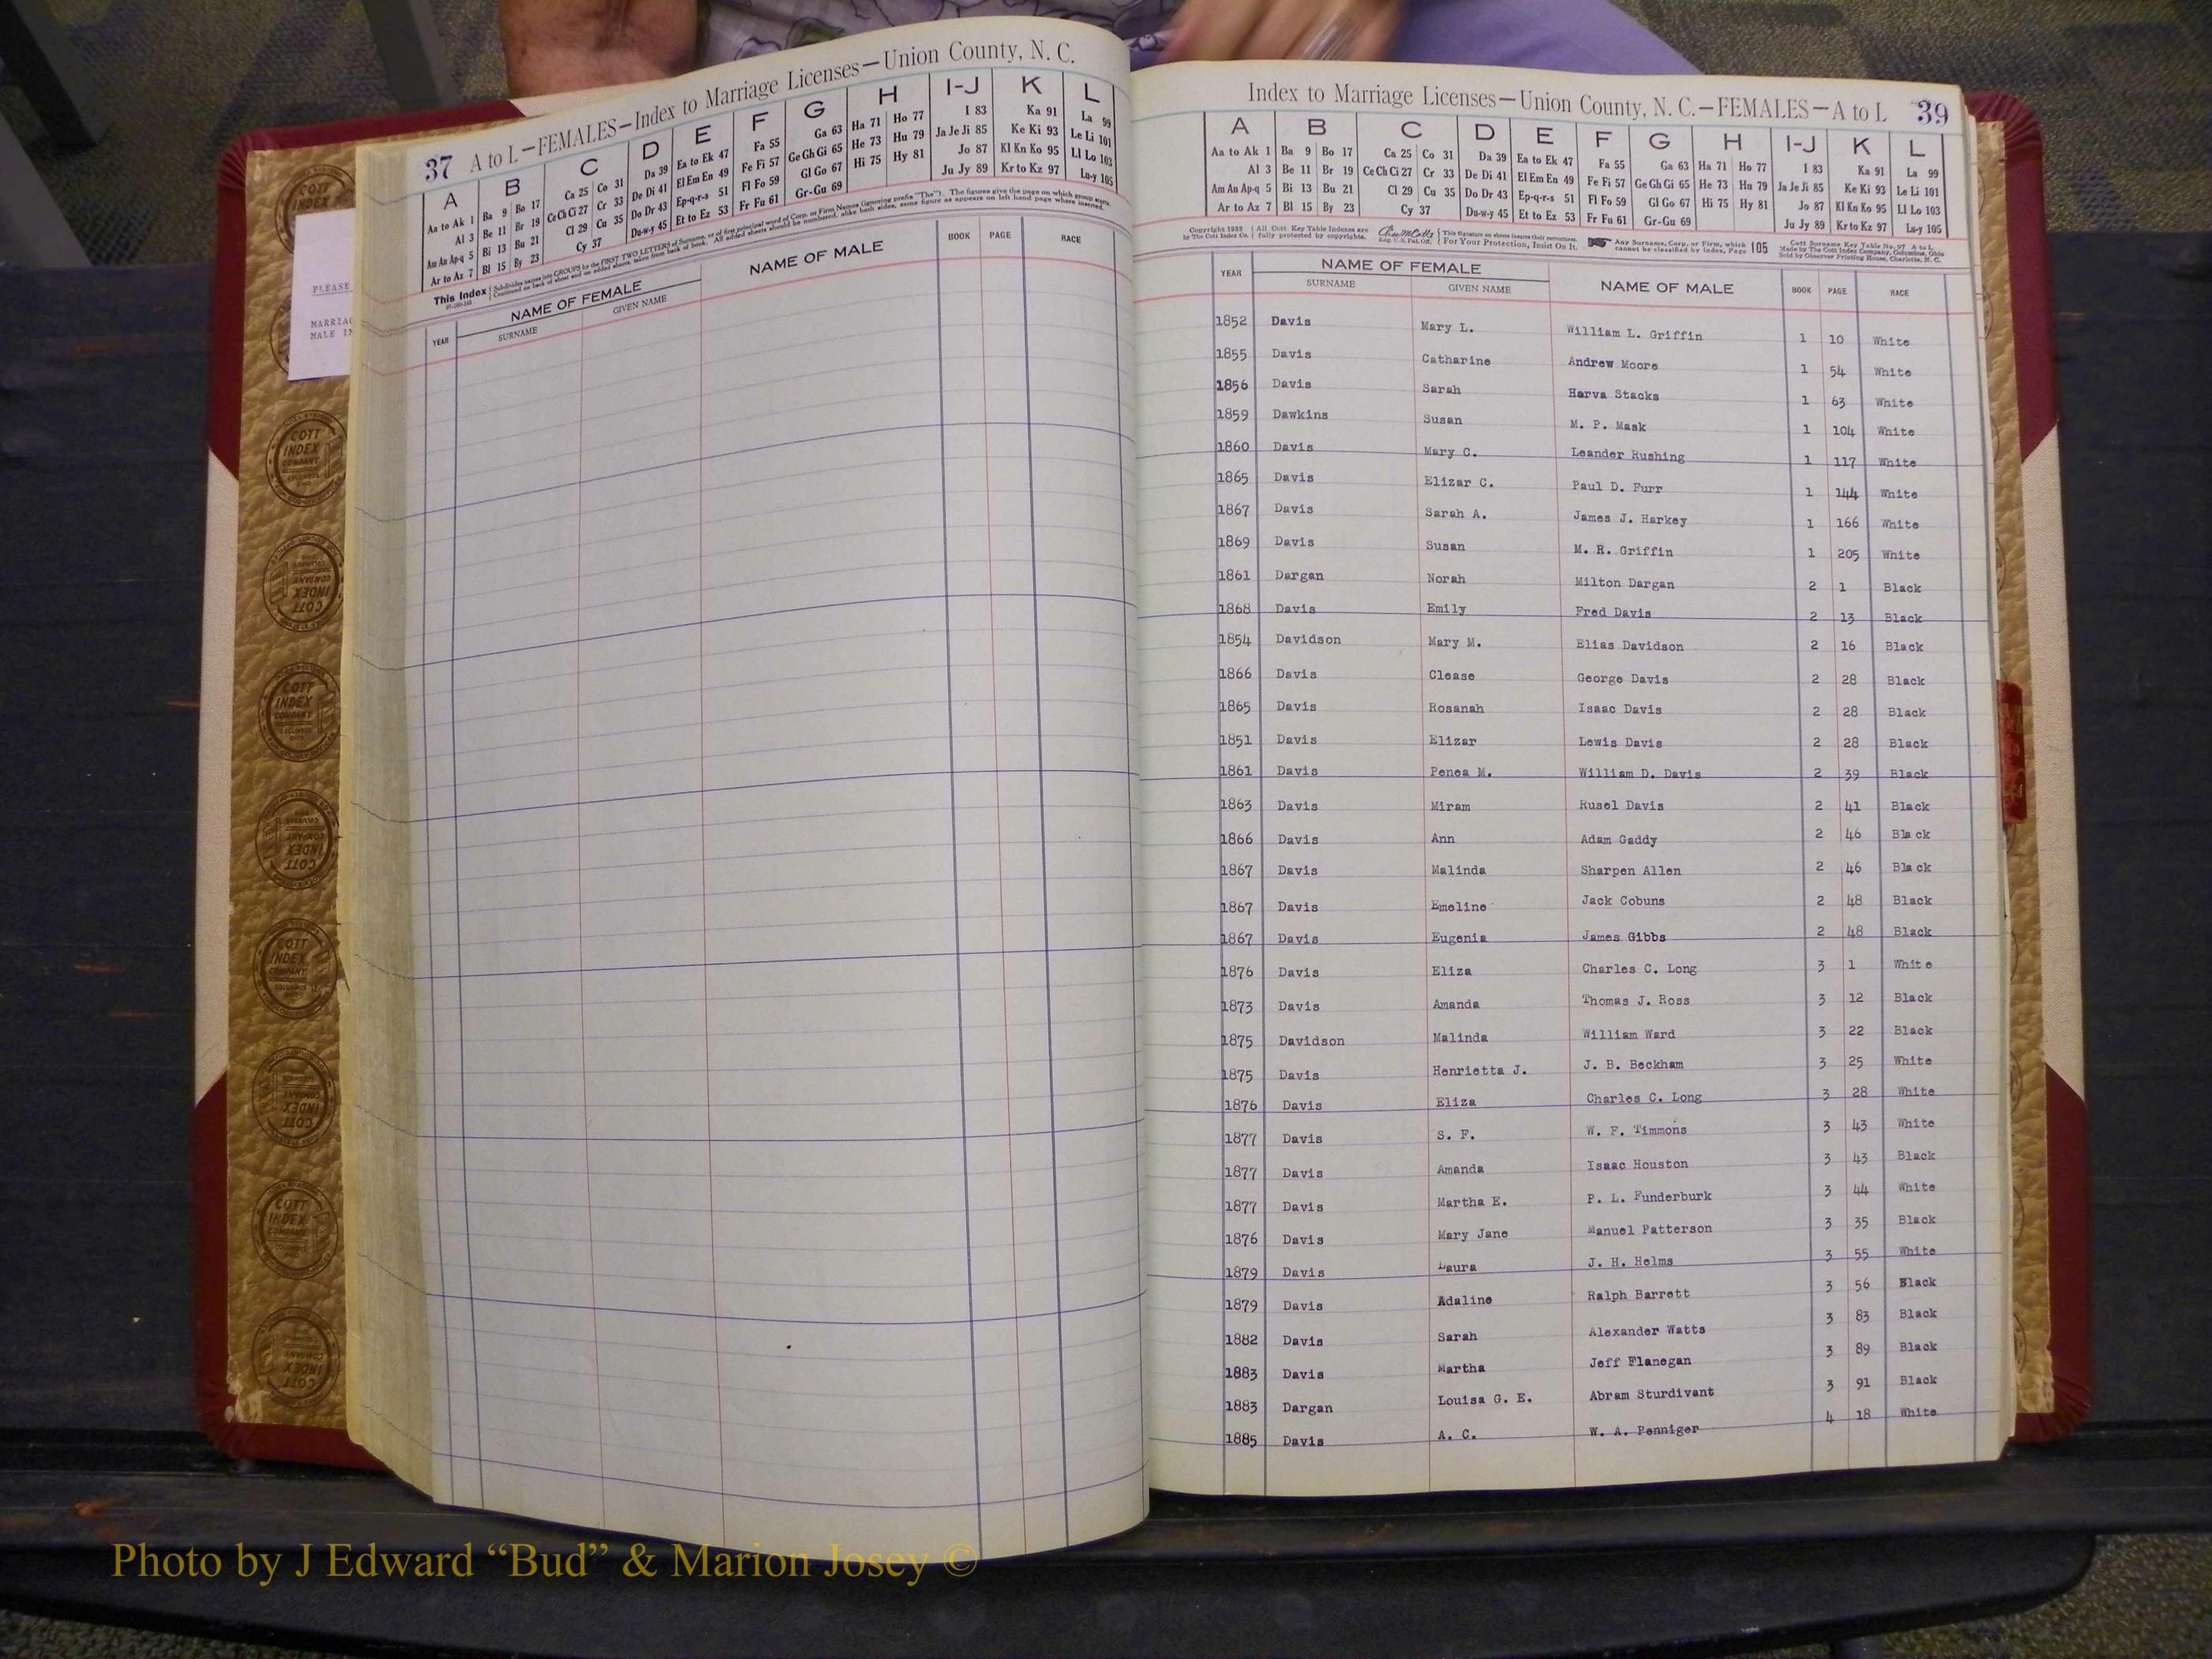 COTT INDEX COMPANY
PLEASE
MARRIAG
MALE IN
37 A to L—FEMALES—Index to Marriage Licenses—Union County, N. C.
A B C D E F G H I-J K L
Aa to Ak 1 Ba 9 Bo 17 Ca 25 Co 31 Da 39 Ea to Ek 47 Fa 55 Ga 63 Ha 71 Ho 77 I 83 Ka 91 La 99
Al 3 Be 11 Br 19 Ce Ch Ci 27 Cr 33 De Di 41 El Em En 49 Fe Fi 57 Ge Gh Gi 65 He 73 Hu 79 Ja Je Ji 85 Ke Ki 93 Le Li 101
Am An Ap-q 5 Bi 13 Bu 21 Cl 29 Cu 35 Do Dr 43 Ep-q-r-s 51 Fl Fo 59 Gl Go 67 Hi 75 Hy 81 Jo 87 Kl Kn Ko 95 Ll Lo 103
Ar to Az 7 Bl 15 By 23 Cy 37 Du-w-y 45 Et to Ez 53 Fr Fu 61 Gr-Gu 69 Ju Jy 89 Kr to Kz 97 Lu-y 105
This Index Subdivides names into GROUPS by the FIRST TWO LETTERS of Surname, or of first principal word of Corp. or Firm Names (ignoring prefix "The"). The figures give the page on which group starts.
Continued on back of sheet and on added sheets, taken from back of book. All added sheets should be numbered, alike both sides, same figure as appears on left hand page where inserted.
YEAR NAME OF FEMALE NAME OF MALE BOOK PAGE RACE
SURNAME GIVEN NAME
Index to Marriage Licenses—Union County, N. C.—FEMALES—A to L 39
A B C D E F G H I-J K L
Aa to Ak 1 Ba 9 Bo 17 Ca 25 Co 31 Da 39 Ea to Ek 47 Fa 55 Ga 63 Ha 71 Ho 77 I 83 Ka 91 La 99
Al 3 Be 11 Br 19 Ce Ch Ci 27 Cr 33 De Di 41 El Em En 49 Fe Fi 57 Ge Gh Gi 65 He 73 Hu 79 Ja Je Ji 85 Ke Ki 93 Le Li 101
Am An Ap-q 5 Bi 13 Bu 21 Cl 29 Cu 35 Do Dr 43 Ep-q-r-s 51 Fl Fo 59 Gl Go 67 Hi 75 Hy 81 Jo 87 Kl Kn Ko 95 Ll Lo 103
Ar to Az 7 Bl 15 By 23 Cy 37 Du-w-y 45 Et to Ez 53 Fr Fu 61 Gr-Gu 69 Ju Jy 89 Kr to Kz 97 Lu-y 105
Copyright 1932 All Cott Key Table Indexes are This signature on sheets insures their correctness. Any Surname, Corp. or Firm, which 105 Cott Surname Key Table No. 97 A to L
by The Cott Index Co. fully protected by copyrights. Reg. U.S. Pat. Of. For Your Protection, Insist On It. cannot be classified by Index, Page Made by The Cott Index Company, Columbus, Ohio
Sold by Observer Printing House, Charlotte, N. C.
YEAR NAME OF FEMALE NAME OF MALE BOOK PAGE RACE
SURNAME GIVEN NAME
1852 Davis Mary L. William L. Griffin 1 10 White
1855 Davis Catharine Andrew Moore 1 54 White
1856 Davis Sarah Harva Stacks 1 63 White
1859 Dawkins Susan M. P. Mask 1 104 White
1860 Davis Mary C. Leander Rushing 1 117 White
1865 Davis Elizar C. Paul D. Furr 1 144 White
1867 Davis Sarah A. James J. Harkey 1 166 White
1869 Davis Susan M. R. Griffin 1 205 White
1861 Dargan Norah Milton Dargan 2 1 Black
1868 Davis Emily Fred Davis 2 13 Black
1854 Davidson Mary M. Elias Davidson 2 16 Black
1866 Davis Clease George Davis 2 28 Black
1865 Davis Rosanah Isaac Davis 2 28 Black
1851 Davis Elizar Lewis Davis 2 28 Black
1861 Davis Penea M. William D. Davis 2 39 Black
1863 Davis Miram Rusel Davis 2 41 Black
1866 Davis Ann Adam Gaddy 2 46 Black
1867 Davis Malinda Sharpen Allen 2 46 Black
1867 Davis Emeline Jack Cobuns 2 48 Black
1867 Davis Eugenia James Gibbs 2 48 Black
1876 Davis Eliza Charles C. Long 3 1 White
1873 Davis Amanda Thomas J. Ross 3 12 Black
1875 Davidson Malinda William Ward 3 22 Black
1875 Davis Henrietta J. J. B. Beckham 3 25 White
1876 Davis Eliza Charles C. Long 3 28 White
1877 Davis S. F. W. F. Timmons 3 43 White
1877 Davis Amanda Isaac Houston 3 43 Black
1877 Davis Martha E. P. L. Funderburk 3 44 White
1876 Davis Mary Jane Manuel Patterson 3 35 Black
1879 Davis Laura J. H. Helms 3 55 White
1879 Davis Adaline Ralph Barrett 3 56 Black
1882 Davis Sarah Alexander Watts 3 83 Black
1883 Davis Martha Jeff Flanegan 3 89 Black
1883 Dargan Louisa G. E. Abram Sturdivant 3 91 Black
1885 Davis A. C. W. A. Penniger 4 18 White
Photo by J Edward “Bud” & Marion Josey ©